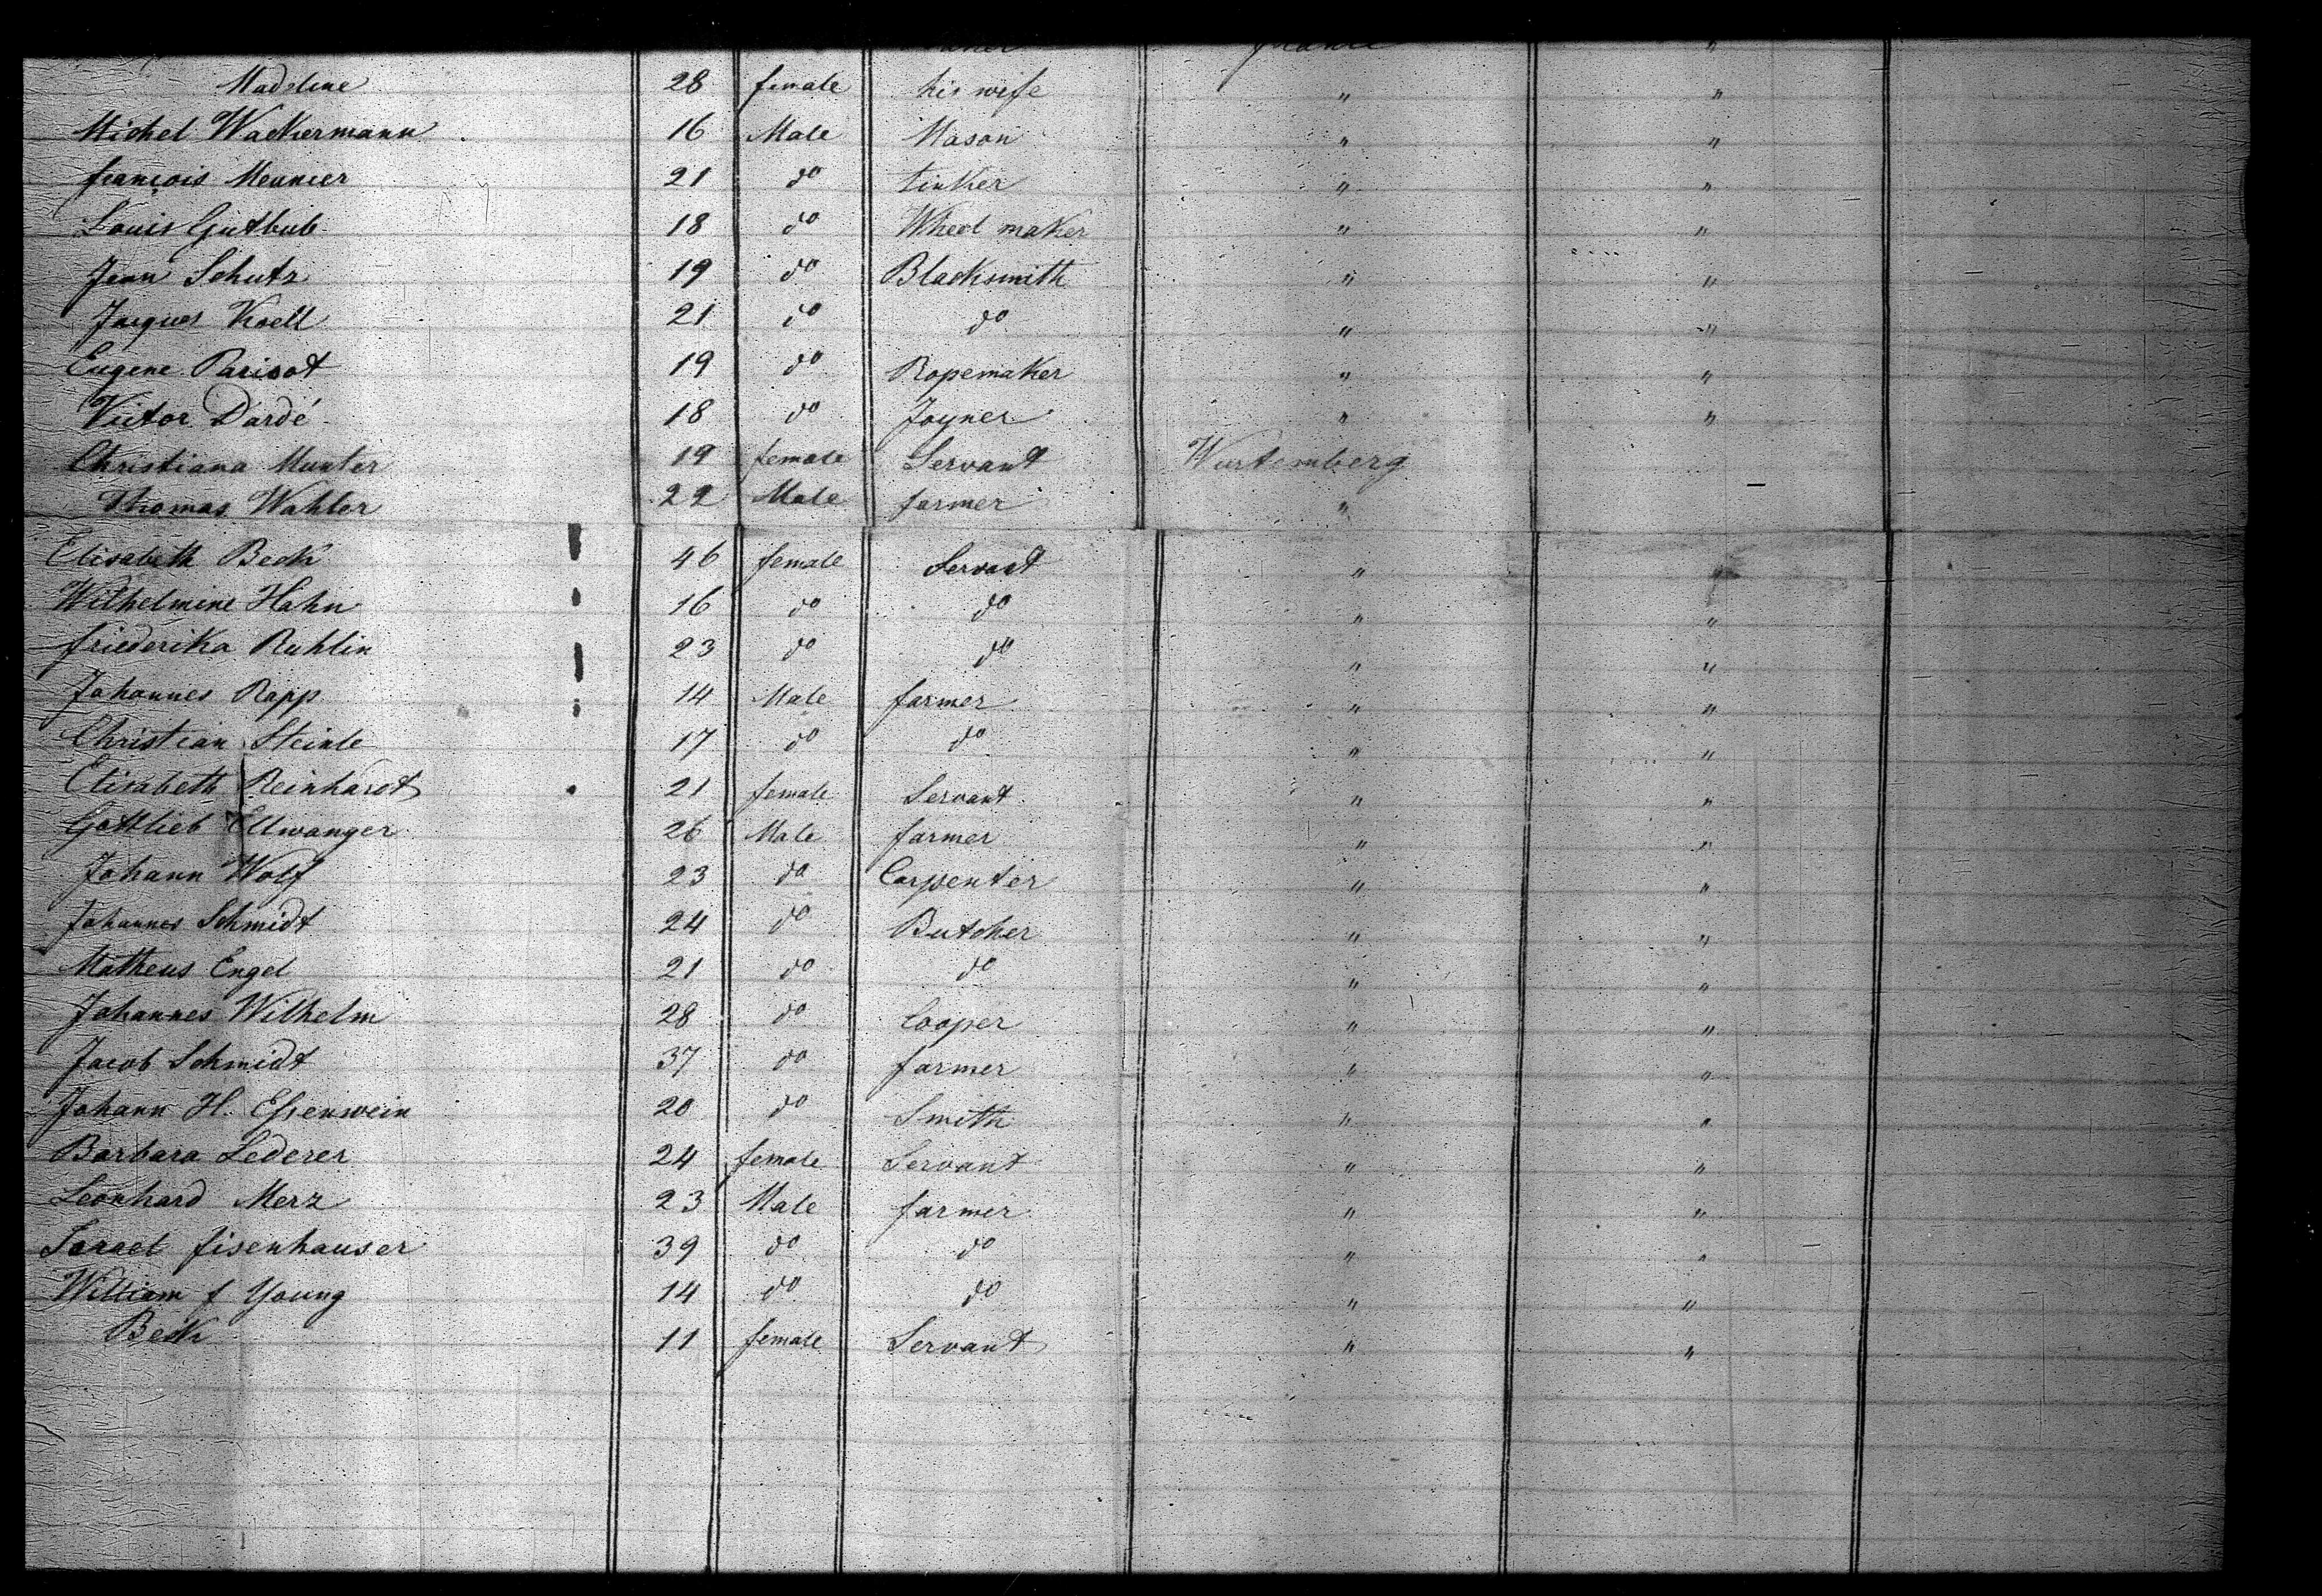 France "
Madeline 28 female his wife " "
Michel Wackermann 16 Male Mason " "
françois Meunier 21 do tinker " "
Louis Gutbub 18 do Wheel maker " "
Jean Schutz 19 do Blacksmith " "
Jacques Koell 21 do do " "
Eugene Parisot 19 do Ropemaker " "
Victor Dardé 18 do Joyner " "
Christiana Munter 19 female Servant Wurtemberg
Thomas Wahler 22 Male farmer "
Elisabeth Beck 46 female Servant "
Wilhelmine Hahn 16 do do " "
friederika Ruhlin 23 do do " "
Johannes Rapp 14 Male farmer " "
Christian Steinle 17 do do " "
Elisabeth Reinhardt 21 female Servant " "
Gottlieb Ellwanger 26 Male farmer " "
Johann Wolf 23 do Carpenter " "
Johannes Schmidt 24 do Butcher " "
Matheus Engel 21 do do " "
Johannes Wilhelm 28 do Cooper " "
Jacob Schmidt 37 do farmer " "
Johann H. Essenwein 20 do Smith " "
Barbara Lederer 24 female Servant " "
Leonhard Merz 23 Male farmer " "
Israel fisenhauser 39 do do " "
William f Young 14 do do " "
Beck 11 female Servant " "